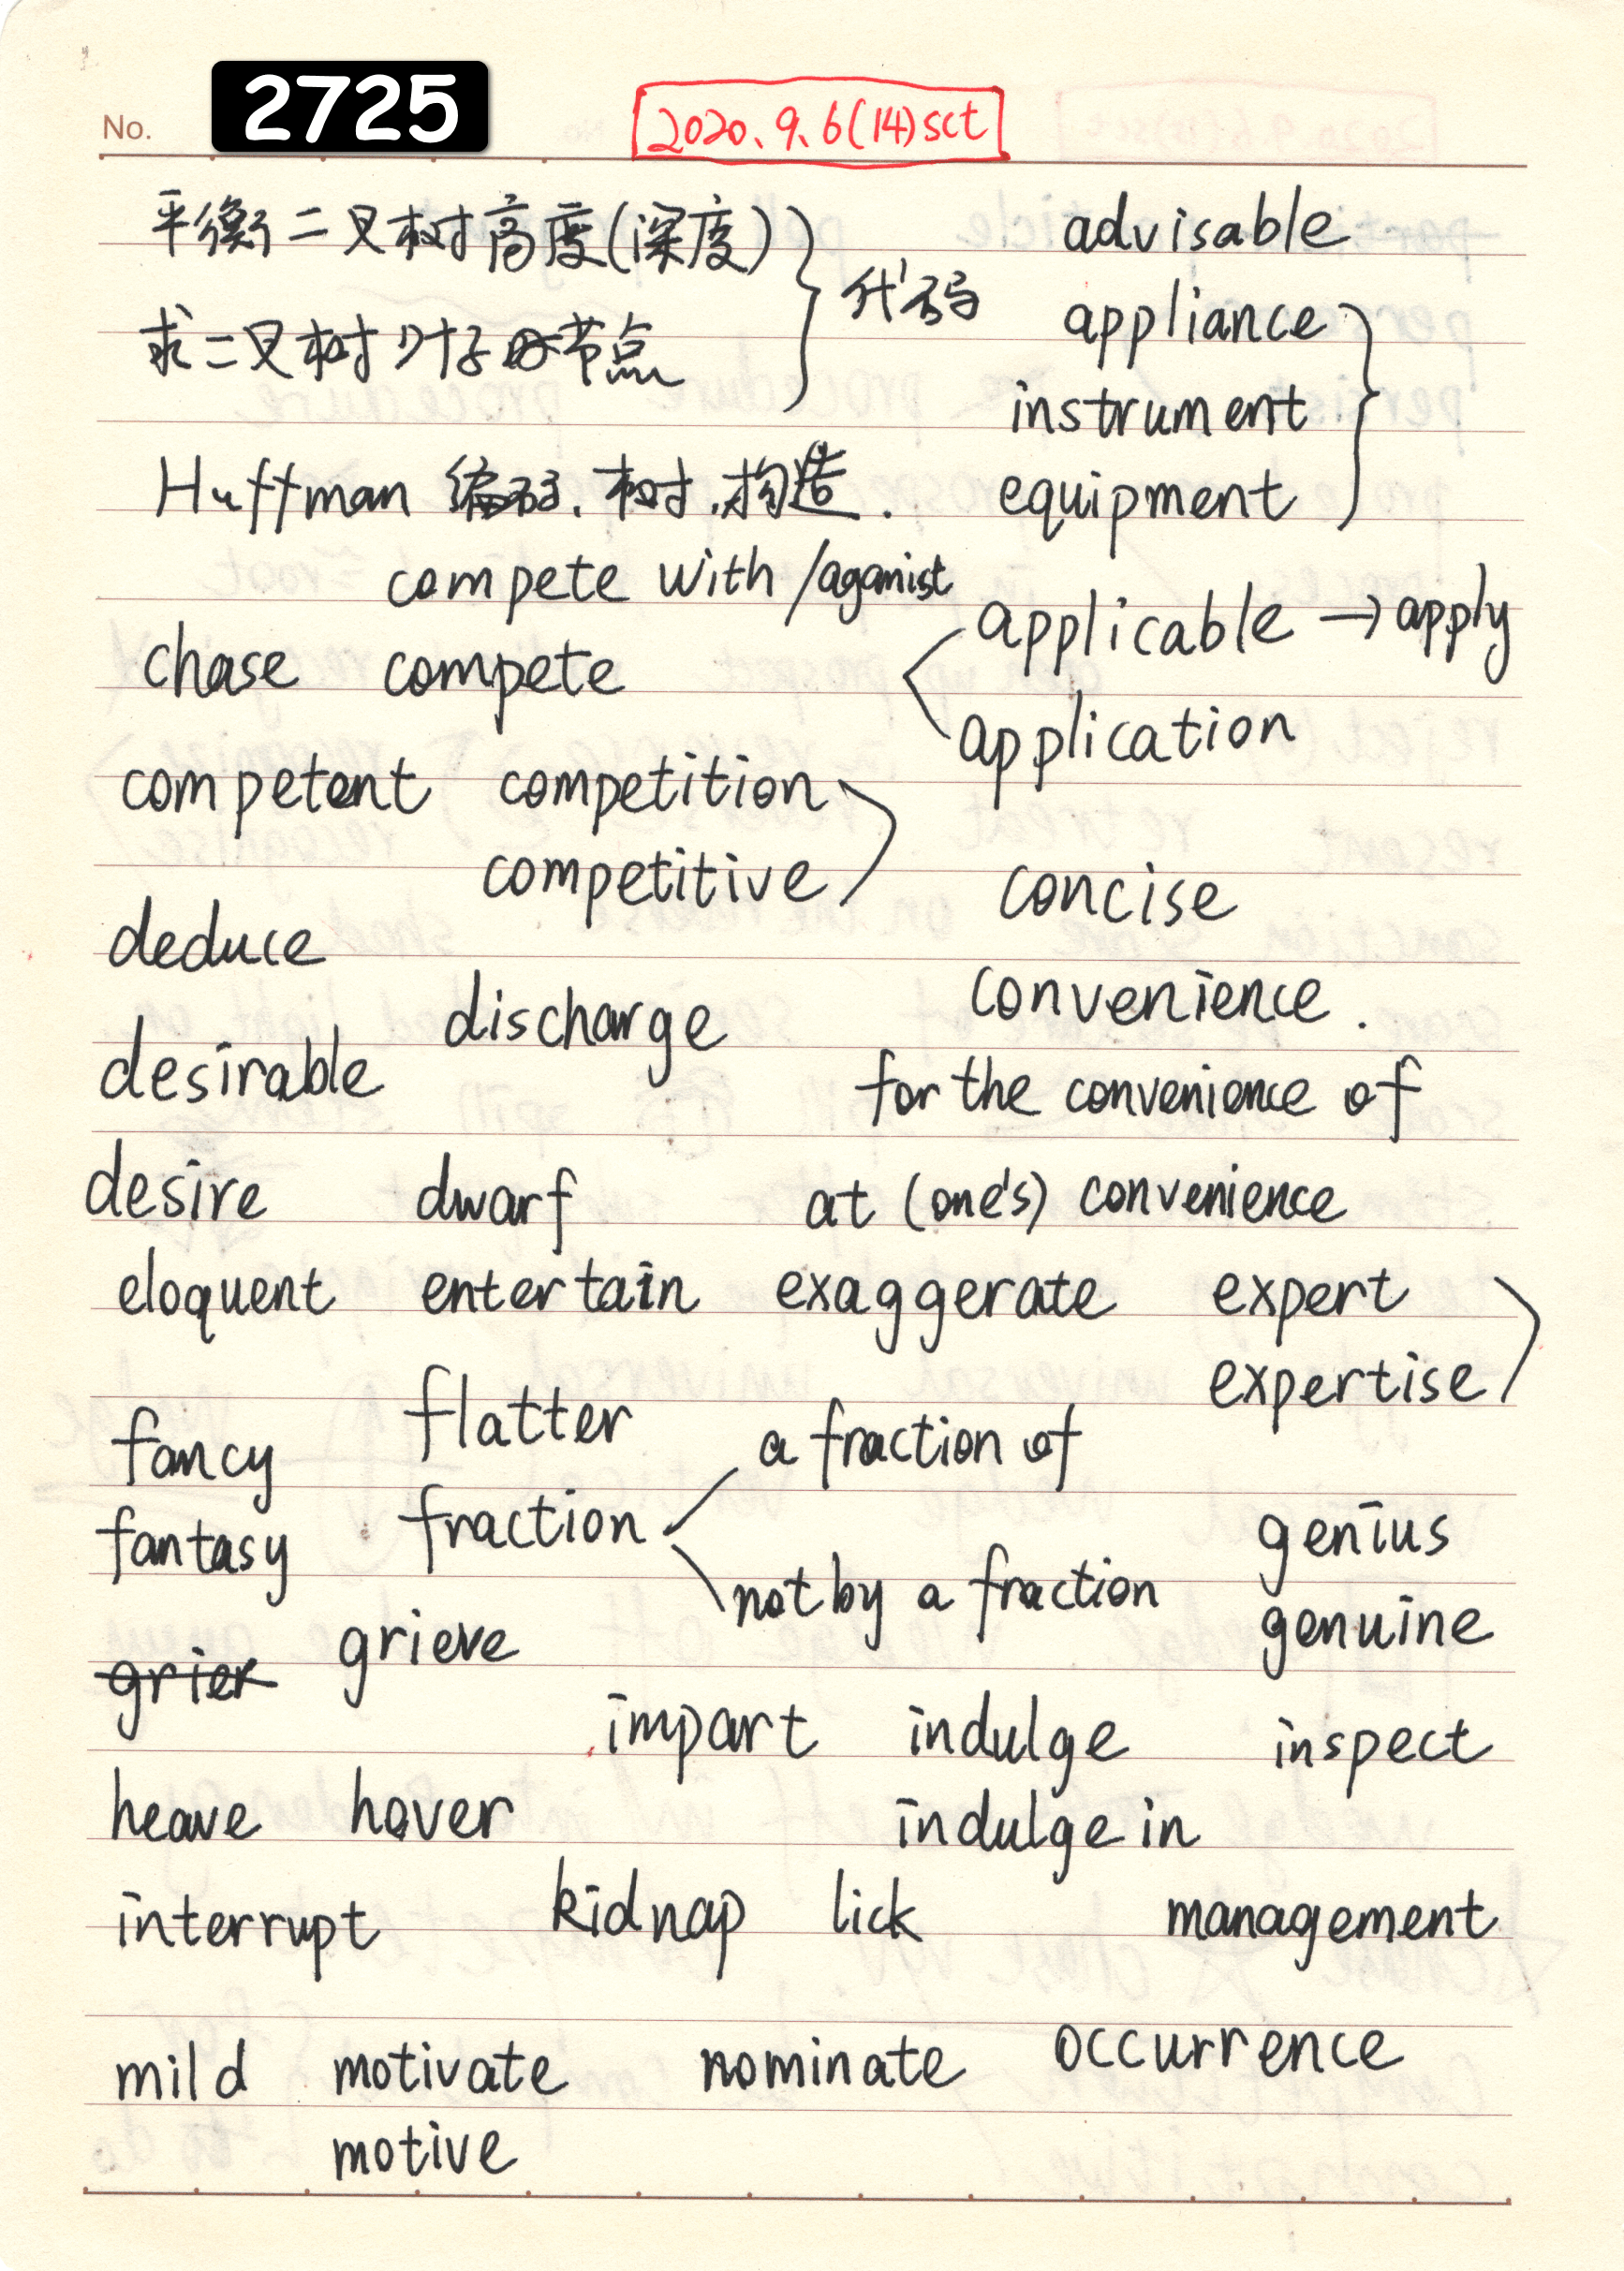 No. 2725 2020.9.6(14)sct
平衡二叉树高度(深度) advisable
代码 appliance
求二叉树叶子节点
instrument
Huffman 编码.树.构造. equipment
compete with /aganist
applicable → apply
chase compete
application
competent competition
competitive concise
deduce
discharge convenience.
desirable for the convenience of
desire dwarf at (one's) convenience
eloquent entertain exaggerate expert
expertise
flatter a fraction of
fancy
fantasy fraction genius
not by a fraction genuine
grier grieve
impart indulge inspect
heave hover indulge in
interrupt kidnap lick management
mild motivate nominate occurrence
motive